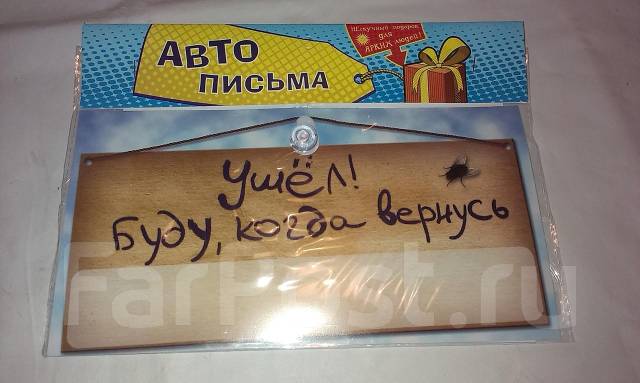 АВТО
ПИСЬМА
НЕскучный подарок
для
ЯРКИХ людей!
Ушёл!
Буду, когда вернусь
FarPost.ru